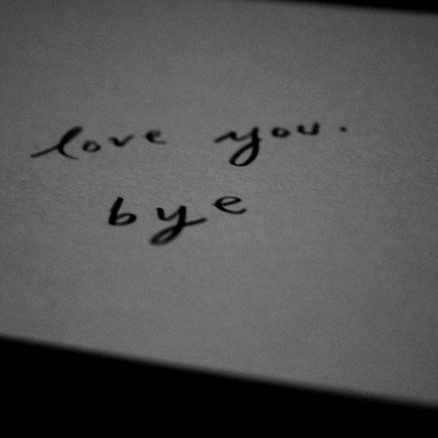 love you.
bye